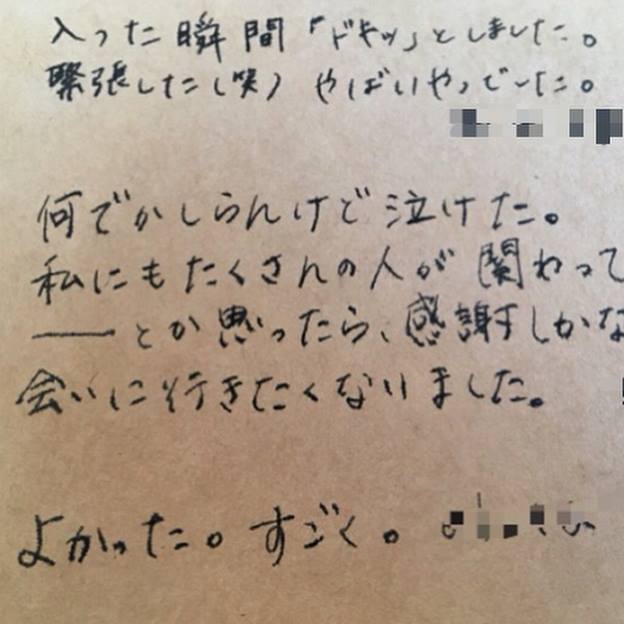 入った瞬間「ドキッ」としました。
緊張した(笑) やばいやつでした。
何でかしらんけど泣けた。
私にもたくさんの人が関わって
――とか思ったら、感謝しかな
会いに行きたくなりました。
よかった。すごく。